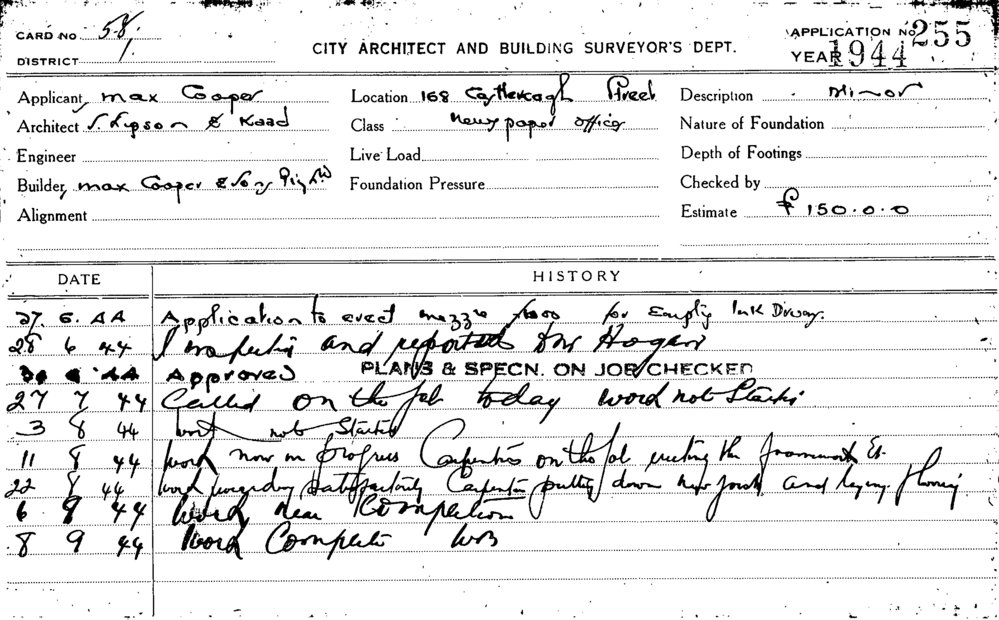 CARD No 58/
DISTRICT
CITY ARCHITECT AND BUILDING SURVEYOR'S DEPT.
APPLICATION No 255
YEAR 1944
Applicant max Cooper
Location 168 Castlereagh Street
Description Minor
Architect S. Lipson & Kaad
Class Newspaper office
Nature of Foundation
Engineer
Live Load
Depth of Footings
Builder max Cooper & Son
Foundation Pressure
Checked by
Alignment
Estimate £150.0.0
DATE
HISTORY
27. 6. 44 Application to erect mezze floor for Empty Ink
28 6 44 Inspected and reported Mr Hogan
30 6 44 Approved PLANS & SPECN. ON JOB CHECKED
27 7 44 Called on the Job today work not Started
3 8 44 work not Started
11 8 44 work now in progress Carpenters on the Job erecting the framework Etc.
22 8 44 work proceeding satisfactorily Carpenters putting down new joists and laying flooring
6 9 44 Work near Completion
8 9 44 Work Complete WB